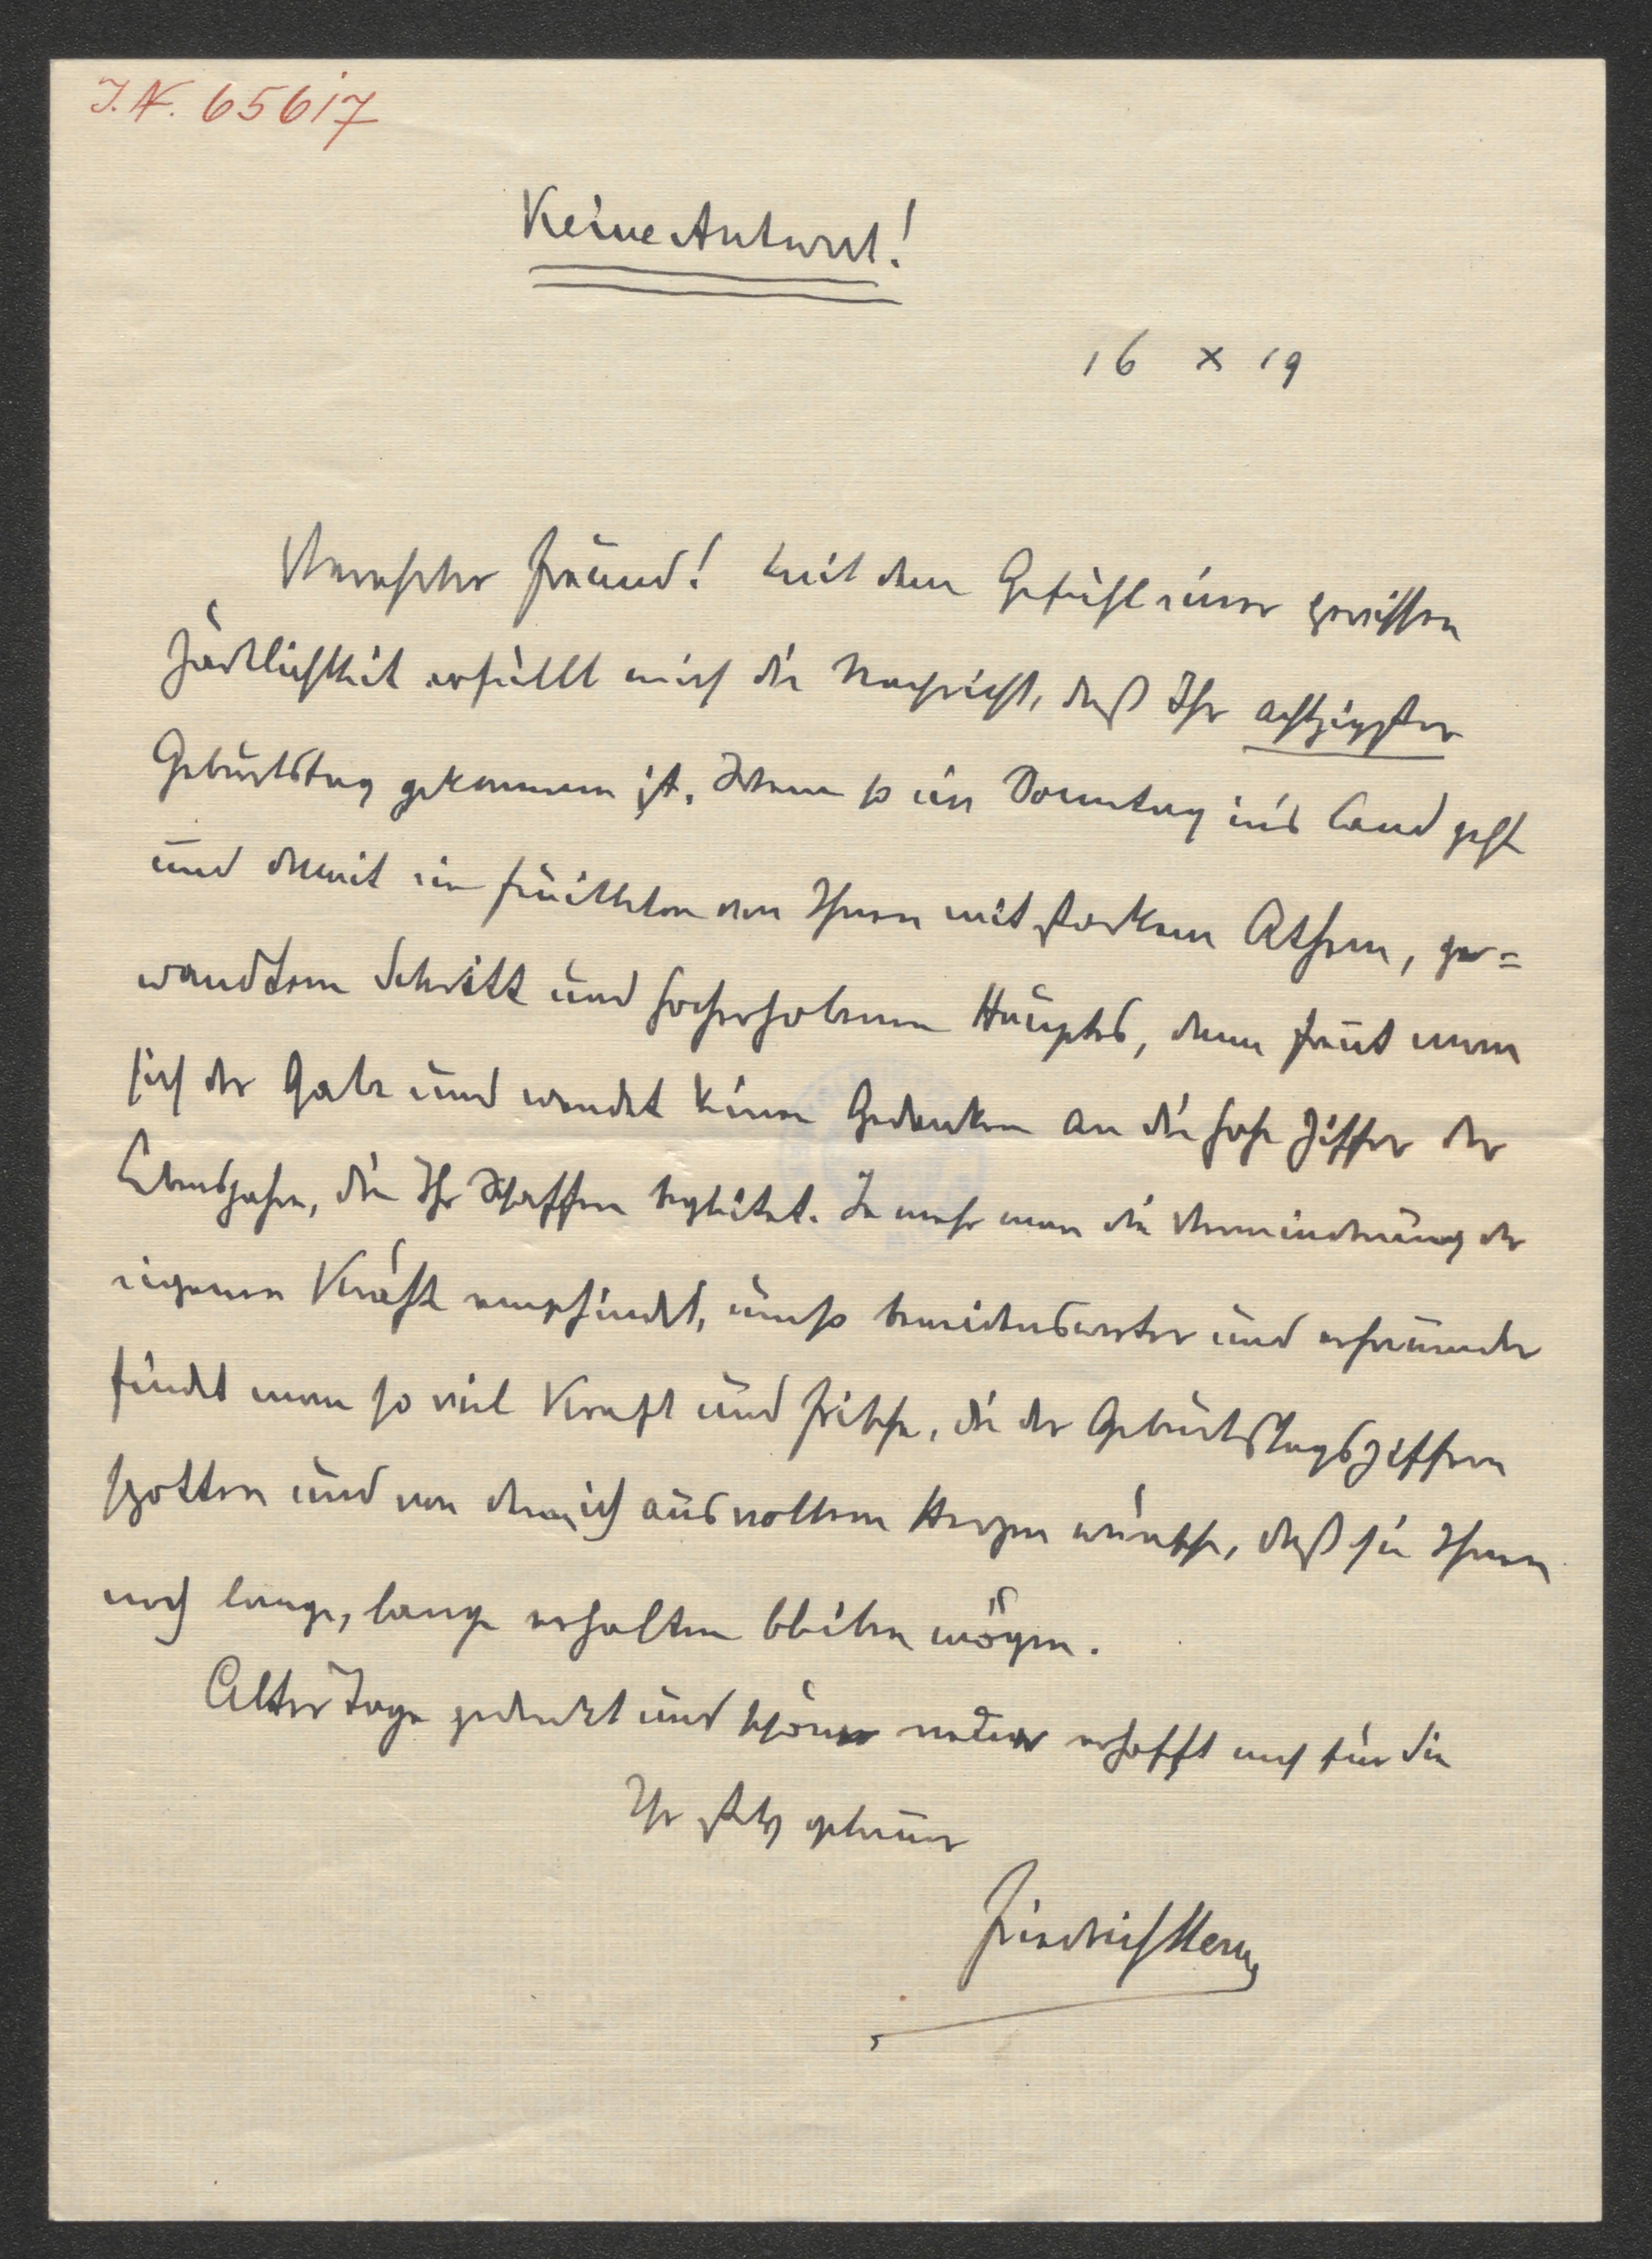 J. N. 65617
Keine Antwort!
16 X 19
Verehrter Freund! Mit dem Gefühl einer gewissen
Zärtlichkeit erfüllt mich die Nachricht, daß Ihr achtzigster
Geburtstag gekommen ist. Wenn so ein Sonntag ins Land geht
und damit ein Feuilleton von Ihnen mit starkem Athem, ge=
wandtem Schritt und hocherhobenen Hauptes, dann freut man
sich der Gabe und wendet keinen Gedanken an die hohe Ziffer der
Lebensjahre, die Ihr Schaffen begleitet. Je mehr man die Verminderung der
eigenen Kräfte empfindet, umso beneidenswerter und erfreuender
findet man so viel Kraft und Frische, die der Geburtstagsziffern
spotten und von denen ich aus vollem Herzen wünsche, daß sie Ihnen
noch lange, lange erhalten bleiben mögen.
Alter Tage gedenkt und schöne neue erhofft auch für Sie
Ihr stets getreuer
Friedrich